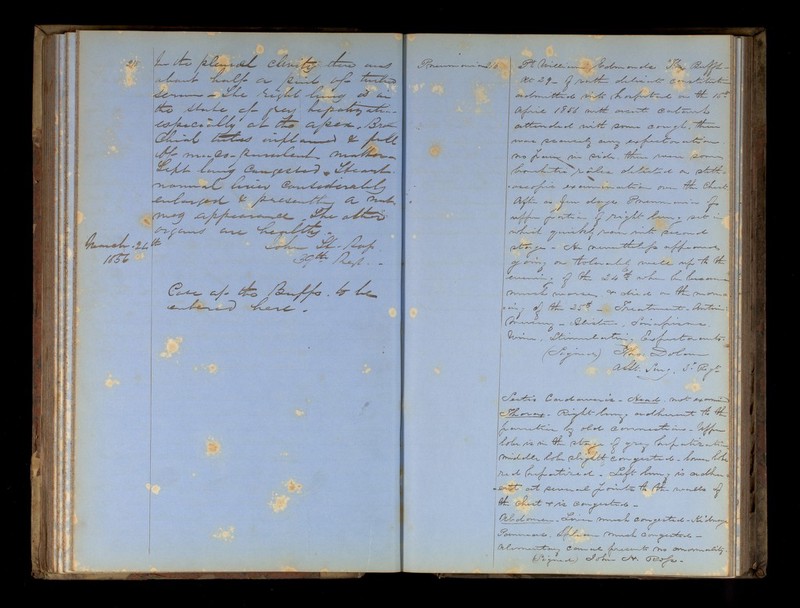 In the pleural cavity there was
about half a pint of turbid
serum. The right lung is in
the state of grey hepatization
especially at the apex. Bron
chial tubes inflamed & full
of muco-purulent matter
Left lung congested. Heart
normal liver considerably
enlarged & presenting a nut
meg appearance. The other
organs are healthy.
March 26th
1856
John H.
Regt.
Case of the Buffs to be
entered here.
Pneumonia
Pt. William The Buffs
Æt 29 of rather delicate constitution
admitted into hospital on the
April 1856 with acute catarrh
attended with some cough, there
was scarcely any expectoration
no pain in side, there were some
râles detected on steth
oscopic examination over the chest
After a few days Pneumonia of
upper portion of right lung set in
which quickly ran into second
stage. He nevertheless appeared
going on tolerably well up to the
evening of the 24th when he became
much worse & died on the morn
ing of the 25th - Treatment. Anti
mony - Blister.
Wine. Stimulating Expectorants.
(Signed) Thos. Dolan
Asst. Surg. 3d Regt
Sectio Cadaveris - Head not examined
Thorax. Right lung adherent to the
parietes by old connections. Upper
lobe is in the stage of grey hepatization
middle lobe slightly congested - lower lobe
red hepatized. Left lung is adher
ent at several points to the walls of
the chest & is congested -
Abdomen. Liver much congested. Kidneys
Spleen much congested -
Alimentary canal presents no abnormality.
Signed John H.